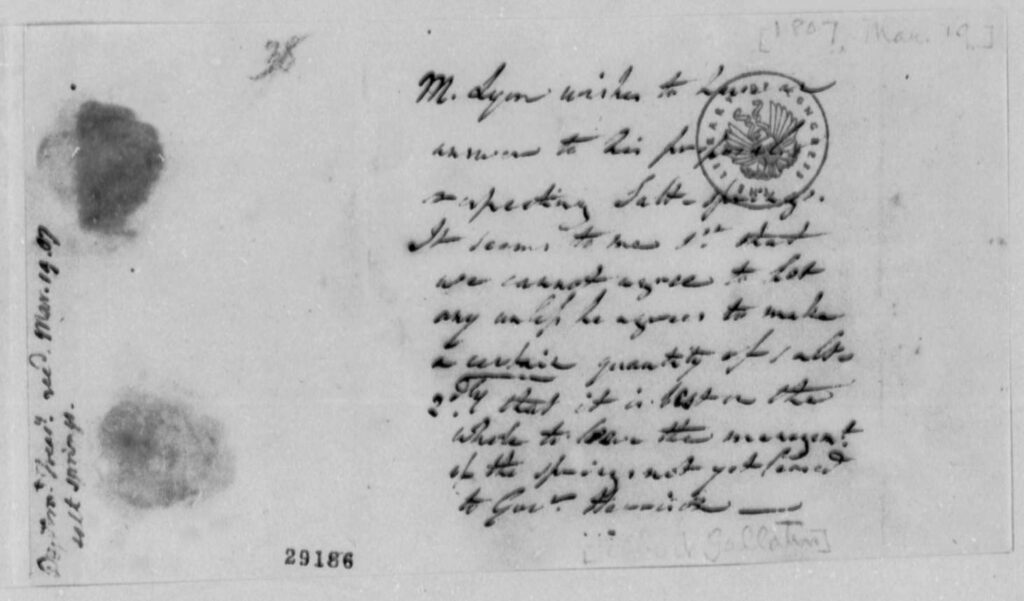 [1807, Mar. 19]
38
M. Lyon wishes to have an
answer to his proposals
respecting Salt-springs.
It seems to me 1.st that
we cannot agree to let
any unless he agrees to make
a certain quantity of salt-
2.dly that it is best on the
whole to leave the managemt.
of the springs not yet leased
to Govr. Harrison —
[Albert Gallatin]
29186
Departmt. Treasy. recd. Mar. 19. 07
salt springs.
LIBRARY OF CONGRESS